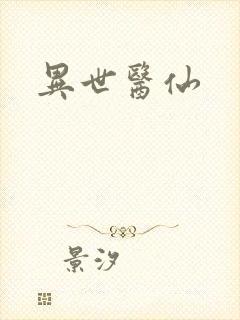 異世醫仙
景汐